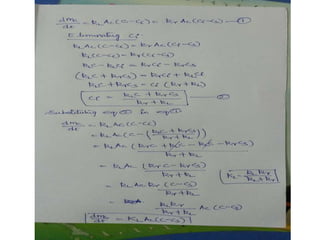 dmc/dt = kL Ac (C - Ci) = kr Ac (Ci - Cs) — ①
Eliminating Ci
kL Ac (C - Ci) = kr Ac (Ci - Cs)
kL (C - Ci) = kr (Ci - Cs)
kLC - kLCi = krCi - krCs
(kLC + krCs) = krCi + kLCi
kLC + krCs = Ci (kr + kL)
Ci = (kLC + krCs)/(kr + kL) — ②
Substituting eq ② in eq ①
dmc/dt = kL Ac (C - Ci)
= kL Ac (C - ((kLC + krCs)/(kr + kL)))
= kL Ac (krC + kLC - kLC - krCs)/(kr + kL)
= kL Ac (krC - krCs)/(kr + kL)
= kL Ac kr (C - Cs)/(kr + kL) [KL = kLkr/(kL + kr)]
= kLkr/(kr + kL) Ac (C - Cs)
dmc/dt = KL Ac (C - Cs)